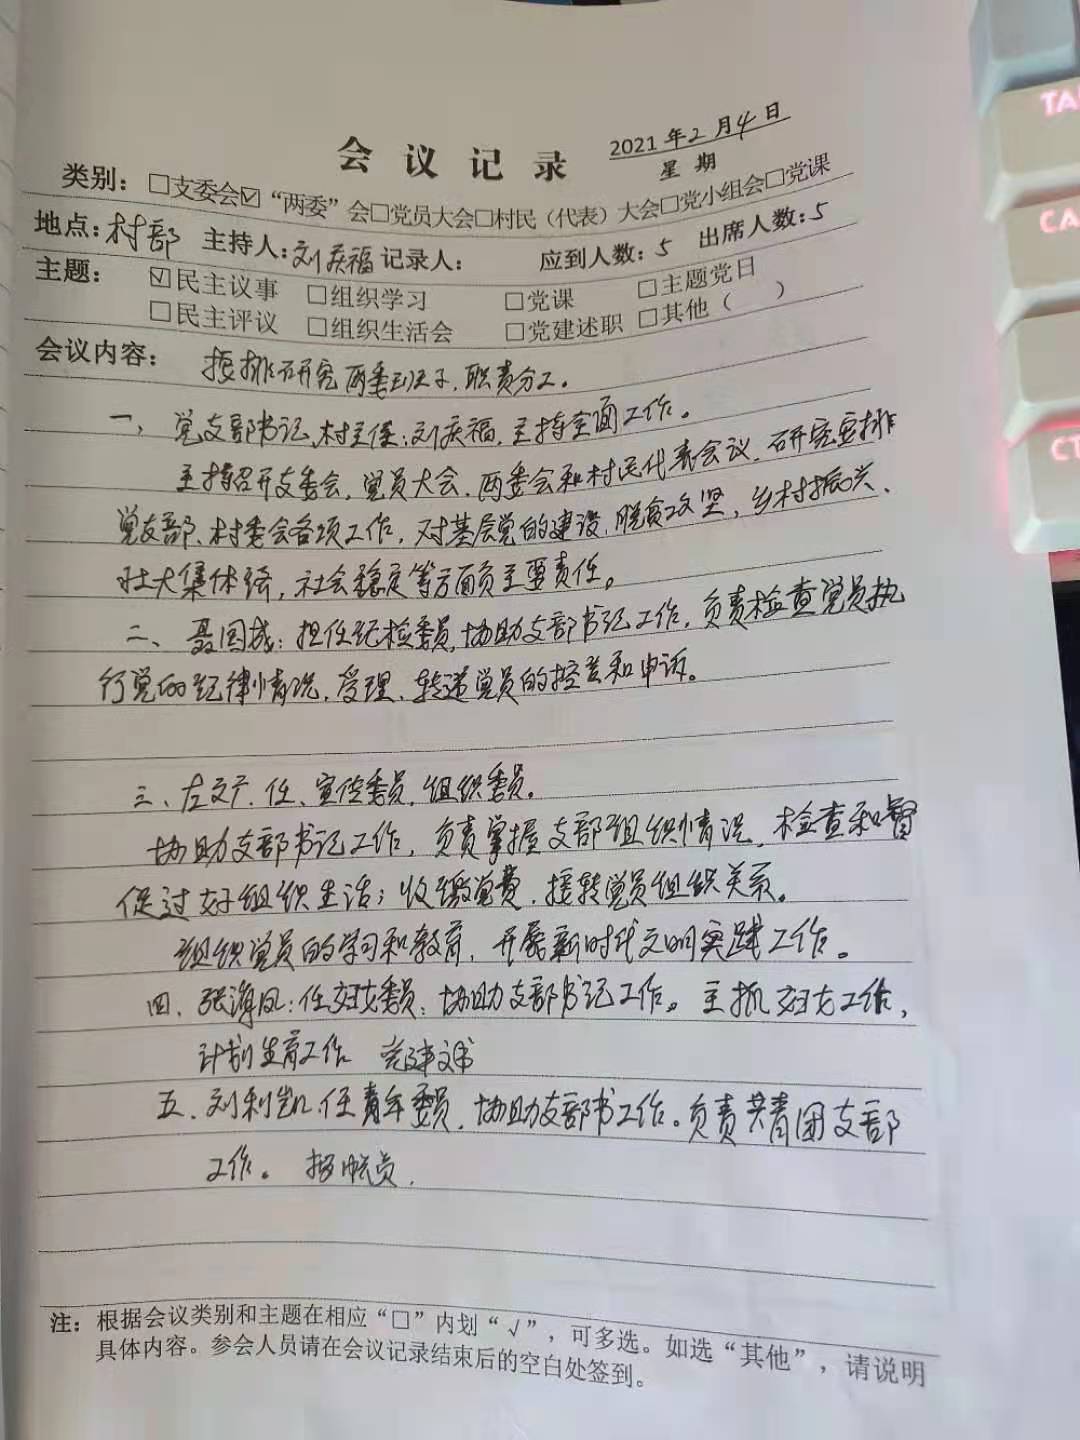 会议记录
2021年2月4日
星期
类别：□支委会☑“两委”会□党员大会□村民（代表）大会□党小组会□党课
地点：村部 主持人：刘庆福 记录人： 应到人数：5 出席人数：5
主题： ☑民主议事 □组织学习 □党课 □主题党日
□民主评议 □组织生活会 □党建述职 □其他（ ）
会议内容： 按排研究两委班子，职责分工。
一、党支部书记，村主任：刘庆福，主持全面工作。
主持召开支委会，党员大会，两委会和村民代表会议，研究安排
党支部、村委会各项工作，对基层党的建设，脱贫攻坚，乡村振兴、
壮大集体经，社会稳定等方面负主要责任。
二、聂国城：担任纪检委员，协助支部书记工作，负责检查党员执
行党的纪律情况，受理、转递党员的控告和申诉。
三、左文广，任、宣传委员，组织委员。
协助支部书记工作，负责掌握支部组织情况，检查和督
促过好组织生活；收缴党费，接转党员组织关系。
组织党员的学习和教育，开展新时代文明实践工作。
四、张海凤：任妇女委员，协助支部书记工作。主抓妇女工作，
计划生育工作 党建文书
五、刘利凯，任青年委员，协助支部书工作。负责共青团支部
工作。 报帐员.
注： 根据会议类别和主题在相应“□”内划“√”，可多选。如选“其他”，请说明
具体内容。参会人员请在会议记录结束后的空白处签到。
TA
CA
CT